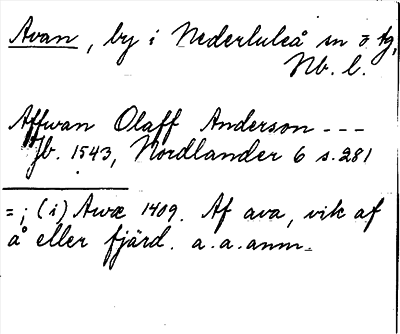 Avan, by i Nederluleå sn o tg,
Nb. l.
Affwan Olaff Anderson ---
Jb. 1543, Nordlander 6 s. 281
=; (i) Awæ 1409. Af ava, vik af
å eller fjärd. a. a. anm.